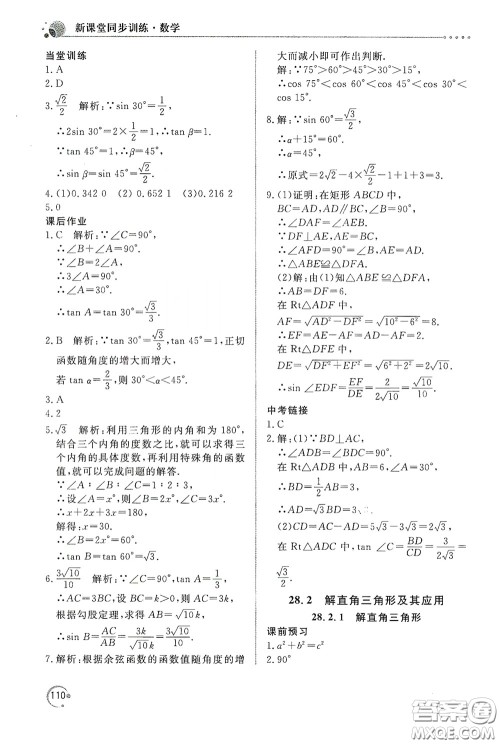 新课堂同步训练·数学
当堂训练
1. A
2. D
3. √2/2 解析:∵sin 30°=1/2,
∴2sin 30°=2×1/2=1,∴tan β=1,
∵tan 45°=1,
∴β=45°,∴sin β=sin 45°=√2/2.
4. (1)0.342 0 (2)0.652 1 (3)0.216 2
5. 0
课后作业
1. C 解析:∵∠C=90°,
∴∠B+∠A=90°.
∵∠B=2∠A,
∴3∠A=90°.
∴∠A=30°.
∴tan A=tan 30°=√3/3.
2. B 解析:∵tan 30°=√3/3,正切
函数随角度的增大而增大,
若 tan α=2/3,则 30°<α<45°.
3. A
4. 2
5. √3 解析:利用三角形的内角和为 180°,
结合三个内角的度数之比,就可以求得三
个内角的具体度数,再利用特殊角的函数
值,就可以完成问题的解答.
∵∠A∶∠B∶∠C=1∶2∶3,
∴设∠A=x°,则∠B=2x°,∠C=3x°.
∴x+2x+3x=180.
解得:x=30.
∴∠A=30°,∠B=60°,∠C=90°.
∴tan B=tan 60°=√3.
6. 3√10/10 解析:∵∠C=90°,tan A=1/3,
∴AC=3BC,设 BC=k>0,则 AC=3k,
根据勾股定理,得 AB=√10k.
∴sin B=AC/AB=3k/√10k=3√10/10.
7. 解析:根据余弦函数的函数值随角度的增
110
大而减小即可作出判断.
解:∵75°>60°>45°>30°>15°,
∴cos 75°<cos 60°<cos 45°<cos 30°<
cos 15°.
8. 解:∵sin 60°=√3/2,
∴α+15°=60°.
∴α=45°.
∴原式=2√2-4×√2/2-1+1+3=3.
9. (1)证明:在矩形 ABCD 中,
BC=AD,AD∥BC,∠B=90°,
∴∠DAF=∠AEB.
∵DF⊥AE,AE=BC=AD,
∴∠AFD=∠B=90°.
∴△ABE≌△DFA.
(2)解:由(1)知△ABE≌△DFA.
∴AB=DF=6.
在 Rt△ADF 中,
AF=√AD²-DF²=√10²-6²=8.
∴EF=AE-AF=AD-AF=2.
在 Rt△DFE 中,
DE=√DF²+EF²=√6²+2²=2√10.
∴sin∠EDF=EF/DE=2/2√10=√10/10.
中考链接
1. C
2. 解:(1)∵BD⊥AC,
∴∠ADB=∠BDC=90°.
在 Rt△ADB 中,AB=6,∠A=30°,
∴BD=1/2AB=3.
∴AD=√3BD=3√3.
(2)CD=AC-AD=5√3-3√3=2√3,
在 Rt△ADC 中,tan∠C=BD/CD=3/2√3=
√3/2.
28.2 解直角三角形及其应用
28.2.1 解直角三角形
课前预习
1. a²+b²=c²
2. 90°